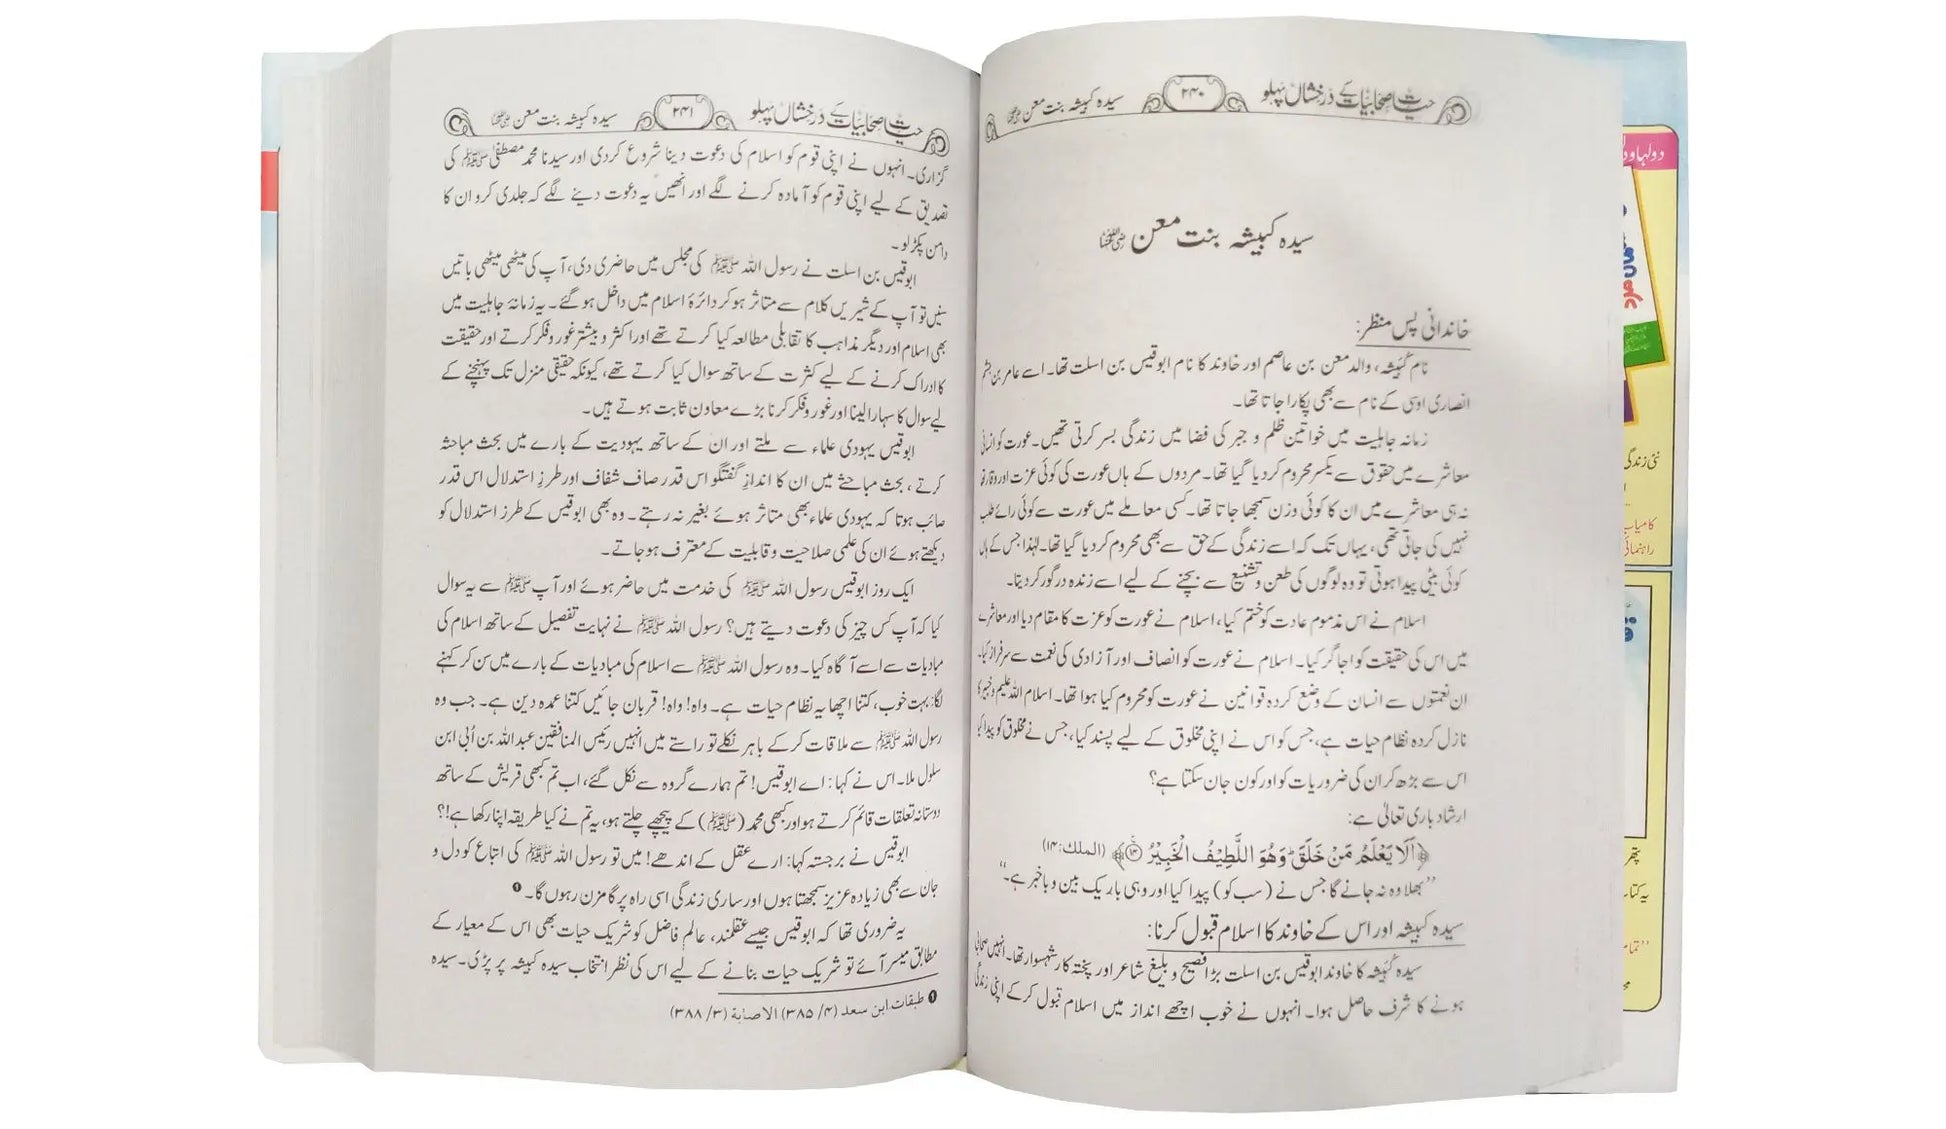 حیات صحابیات کے درخشاں پہلو ۲۴۰ سیدہ کبیشہ بنت معن رضی اللہ عنہا
سیدہ کبیشہ بنت معن رضی اللہ عنہا
خاندانی پس منظر:
نام کبیشہ، والد معن بن عاصم اور خاوند کا نام ابوقیس بن اسلت تھا۔ اسے عامر بن جشم
انصاری اوسی کے نام سے بھی پکارا جاتا تھا۔
زمانہ جاہلیت میں خواتین ظلم و جبر کی فضا میں زندگی بسر کرتی تھیں۔ عورت کو انسانی
معاشرے میں حقوق سے یکسر محروم کر دیا گیا تھا۔ مردوں کے ہاں عورت کی کوئی عزت اور وقار نہ
نہ ہی معاشرے میں ان کا کوئی وزن سمجھا جاتا تھا۔ کسی معاملے میں عورت سے کوئی رائے طلب
نہیں کی جاتی تھی، یہاں تک کہ اسے زندگی کے حق سے بھی محروم کر دیا گیا تھا۔ لہٰذا جس کے ہاں
کوئی بیٹی پیدا ہوتی تو وہ لوگوں کی طعن و تشنیع سے بچنے کے لیے اسے زندہ درگور کر دیتا۔
اسلام نے اس مذموم عادت کو ختم کیا، اسلام نے عورت کو عزت کا مقام دیا اور معاشرے
میں اس کی حقیقت کو اجاگر کیا۔ اسلام نے عورت کو انصاف اور آزادی کی نعمت سے سرفراز کیا۔
ان نعمتوں سے انسان کے وضع کردہ قوانین نے عورت کو محروم کیا ہوا تھا۔ اسلام اللہ علیم وخبیر کا
نازل کردہ نظام حیات ہے، جس کو اس نے اپنی مخلوق کے لیے پسند کیا، جس نے مخلوق کو پیدا کیا
اس سے بڑھ کر ان کی ضروریات کو اور کون جان سکتا ہے؟
ارشاد باری تعالیٰ ہے:
﴿اَلَا يَعْلَمُ مَنْ خَلَقَ ؕ وَهُوَ اللَّطِيْفُ الْخَبِيْرُ ۝۱۴﴾ (الملک: ۱۴)
"بھلا وہ نہ جانے گا جس نے (سب کو) پیدا کیا اور وہی باریک بین و باخبر ہے۔"
سیدہ کبیشہ اور اس کے خاوند کا اسلام قبول کرنا:
سیدہ کبیشہ کا خاوند ابوقیس بن اسلت بڑا فصیح و بلیغ شاعر اور پختہ کار شہسوار تھا۔ انہیں صحابی
ہونے کا شرف حاصل ہوا۔ انہوں نے خوب اچھے انداز میں اسلام قبول کر کے اپنی زندگی
حیات صحابیات کے درخشاں پہلو ۲۴۱ سیدہ کبیشہ بنت معن رضی اللہ عنہا
گزاری۔ انہوں نے اپنی قوم کو اسلام کی دعوت دینا شروع کر دی اور سیدنا محمد مصطفیٰ ﷺ کی
تصدیق کے لیے اپنی قوم کو آمادہ کرنے لگے اور انھیں یہ دعوت دینے لگے کہ جلدی کرو ان کا
دامن پکڑ لو۔
ابوقیس بن اسلت نے رسول اللہ ﷺ کی مجلس میں حاضری دی، آپ کی میٹھی میٹھی باتیں
سنیں تو آپ کے شیریں کلام سے متاثر ہو کر دائرۂ اسلام میں داخل ہو گئے۔ یہ زمانۂ جاہلیت میں
بھی اسلام اور دیگر مذاہب کا تقابلی مطالعہ کیا کرتے تھے اور اکثر و بیشتر غور و فکر کرتے اور حقیقت
کا ادراک کرنے کے لیے کثرت کے ساتھ سوال کیا کرتے تھے، کیونکہ حقیقی منزل تک پہنچنے کے
لیے سوال کا سہارا لینا اور غور و فکر کرنا بڑے معاون ثابت ہوتے ہیں۔
ابوقیس یہودی علماء سے ملتے اور ان کے ساتھ یہودیت کے بارے میں بحث مباحثہ
کرتے، بحث مباحثے میں ان کا انداز گفتگو اس قدر صاف شفاف اور طرز استدلال اس قدر
صائب ہوتا کہ یہودی علماء بھی متاثر ہوئے بغیر نہ رہتے۔ وہ بھی ابوقیس کے طرز استدلال کو
دیکھتے ہوئے ان کی علمی صلاحیت و قابلیت کے معترف ہو جاتے۔
ایک روز ابوقیس رسول اللہ ﷺ کی خدمت میں حاضر ہوئے اور آپ ﷺ سے یہ سوال
کیا کہ آپ کس چیز کی دعوت دیتے ہیں؟ رسول اللہ ﷺ نے نہایت تفصیل کے ساتھ اسلام کی
مبادیات سے اسے آگاہ کیا۔ وہ رسول اللہ ﷺ سے اسلام کی مبادیات کے بارے میں سن کر کہنے
لگا: بہت خوب، کتنا اچھا یہ نظام حیات ہے۔ واہ! واہ! قربان جائیں کتنا عمدہ دین ہے۔ جب وہ
رسول اللہ ﷺ سے ملاقات کر کے باہر نکلے تو راستے میں انہیں رئیس المنافقین عبداللہ بن اُبی ابن
سلول ملا۔ اس نے کہا: اے ابوقیس! تم ہمارے گروہ سے نکل گئے، اب تم کبھی قریش کے ساتھ
دوستانہ تعلقات قائم کرتے ہو اور کبھی محمد (ﷺ) کے پیچھے چلتے ہو، یہ تم نے کیا طریقہ اپنا رکھا ہے!؟
ابوقیس نے برجستہ کہا: ارے عقل کے اندھے! میں تو رسول اللہ ﷺ کی اتباع کو دل و
جان سے بھی زیادہ عزیز سمجھتا ہوں اور ساری زندگی اسی راہ پر گامزن رہوں گا۔ ❶
یہ ضروری تھا کہ ابوقیس جیسے عقلمند، عالم فاضل کو شریک حیات بھی اس کے معیار کے
مطابق میسر آئے تو شریک حیات بنانے کے لیے اس کی نظر انتخاب سیدہ کبیشہ پر پڑی۔ سیدہ
❶ طبقات ابن سعد (۴/ ۳۸۵) الاصابة (۳/ ۳۸۸)
دولہا و
نئی زندگی
کامیاب
راہنمائی
پھر
یہ کتاب
"تمام